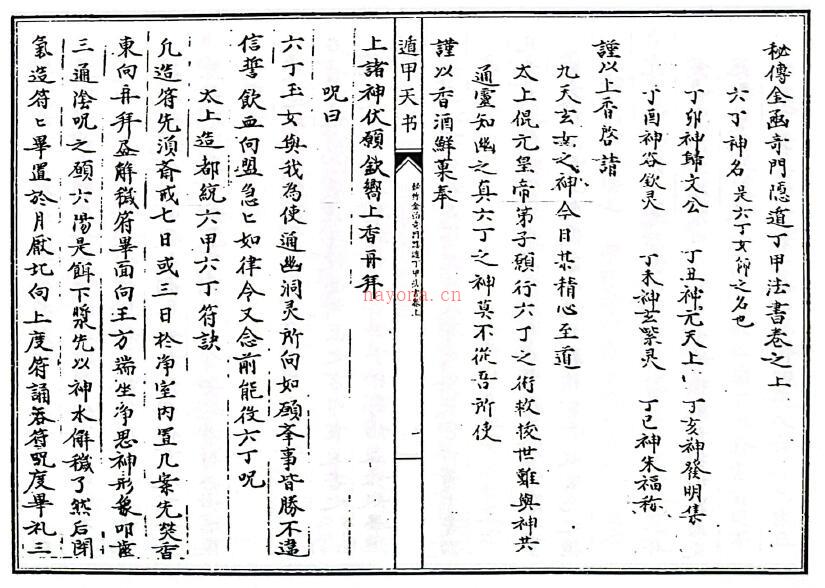 秘傳金函奇門隱遁丁甲法書卷之上
六丁神名是六丁玉女之名也
丁卯神歸文公 丁丑神元天上 丁亥神發明集
丁酉神容欽灵 丁未神玄紫灵 丁巳神朱福称
謹以上香啓請
九天玄女之神今日某精心至道
太上混元皇帝弟子願行六丁之術救拔世難與神共
通靈知幽之真六丁之神莫不從吾所使
謹以香酒鮮菓奉
遁甲天书
秘傳金函奇門隱遁丁甲法書卷上
一
上諸神伏願欽嚮上香再拜
呪曰
六丁玉女與我為使通幽洞灵所向如願峯事皆勝不違
信誓飲血向盟急匕如律令又念前能役六丁呪
太上造都統六甲六丁符訣
凢造符先湏斎戒七日或三日於净室内置几案先焚香
東向再拜盃解穢符畢面向王方端坐净思神形象叩歯
三通隂呪之願六陽是餌下漿先以神水觧穢了然后閉
氣造符匕畢置於月厭圠向上度符誦吞符呪度畢礼三
hayona.cn